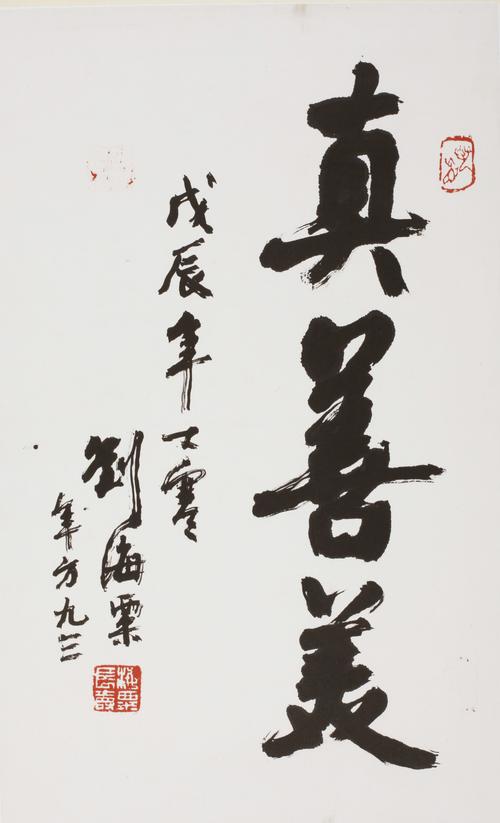 真善美
戊辰年大雪
劉海粟
年方九三